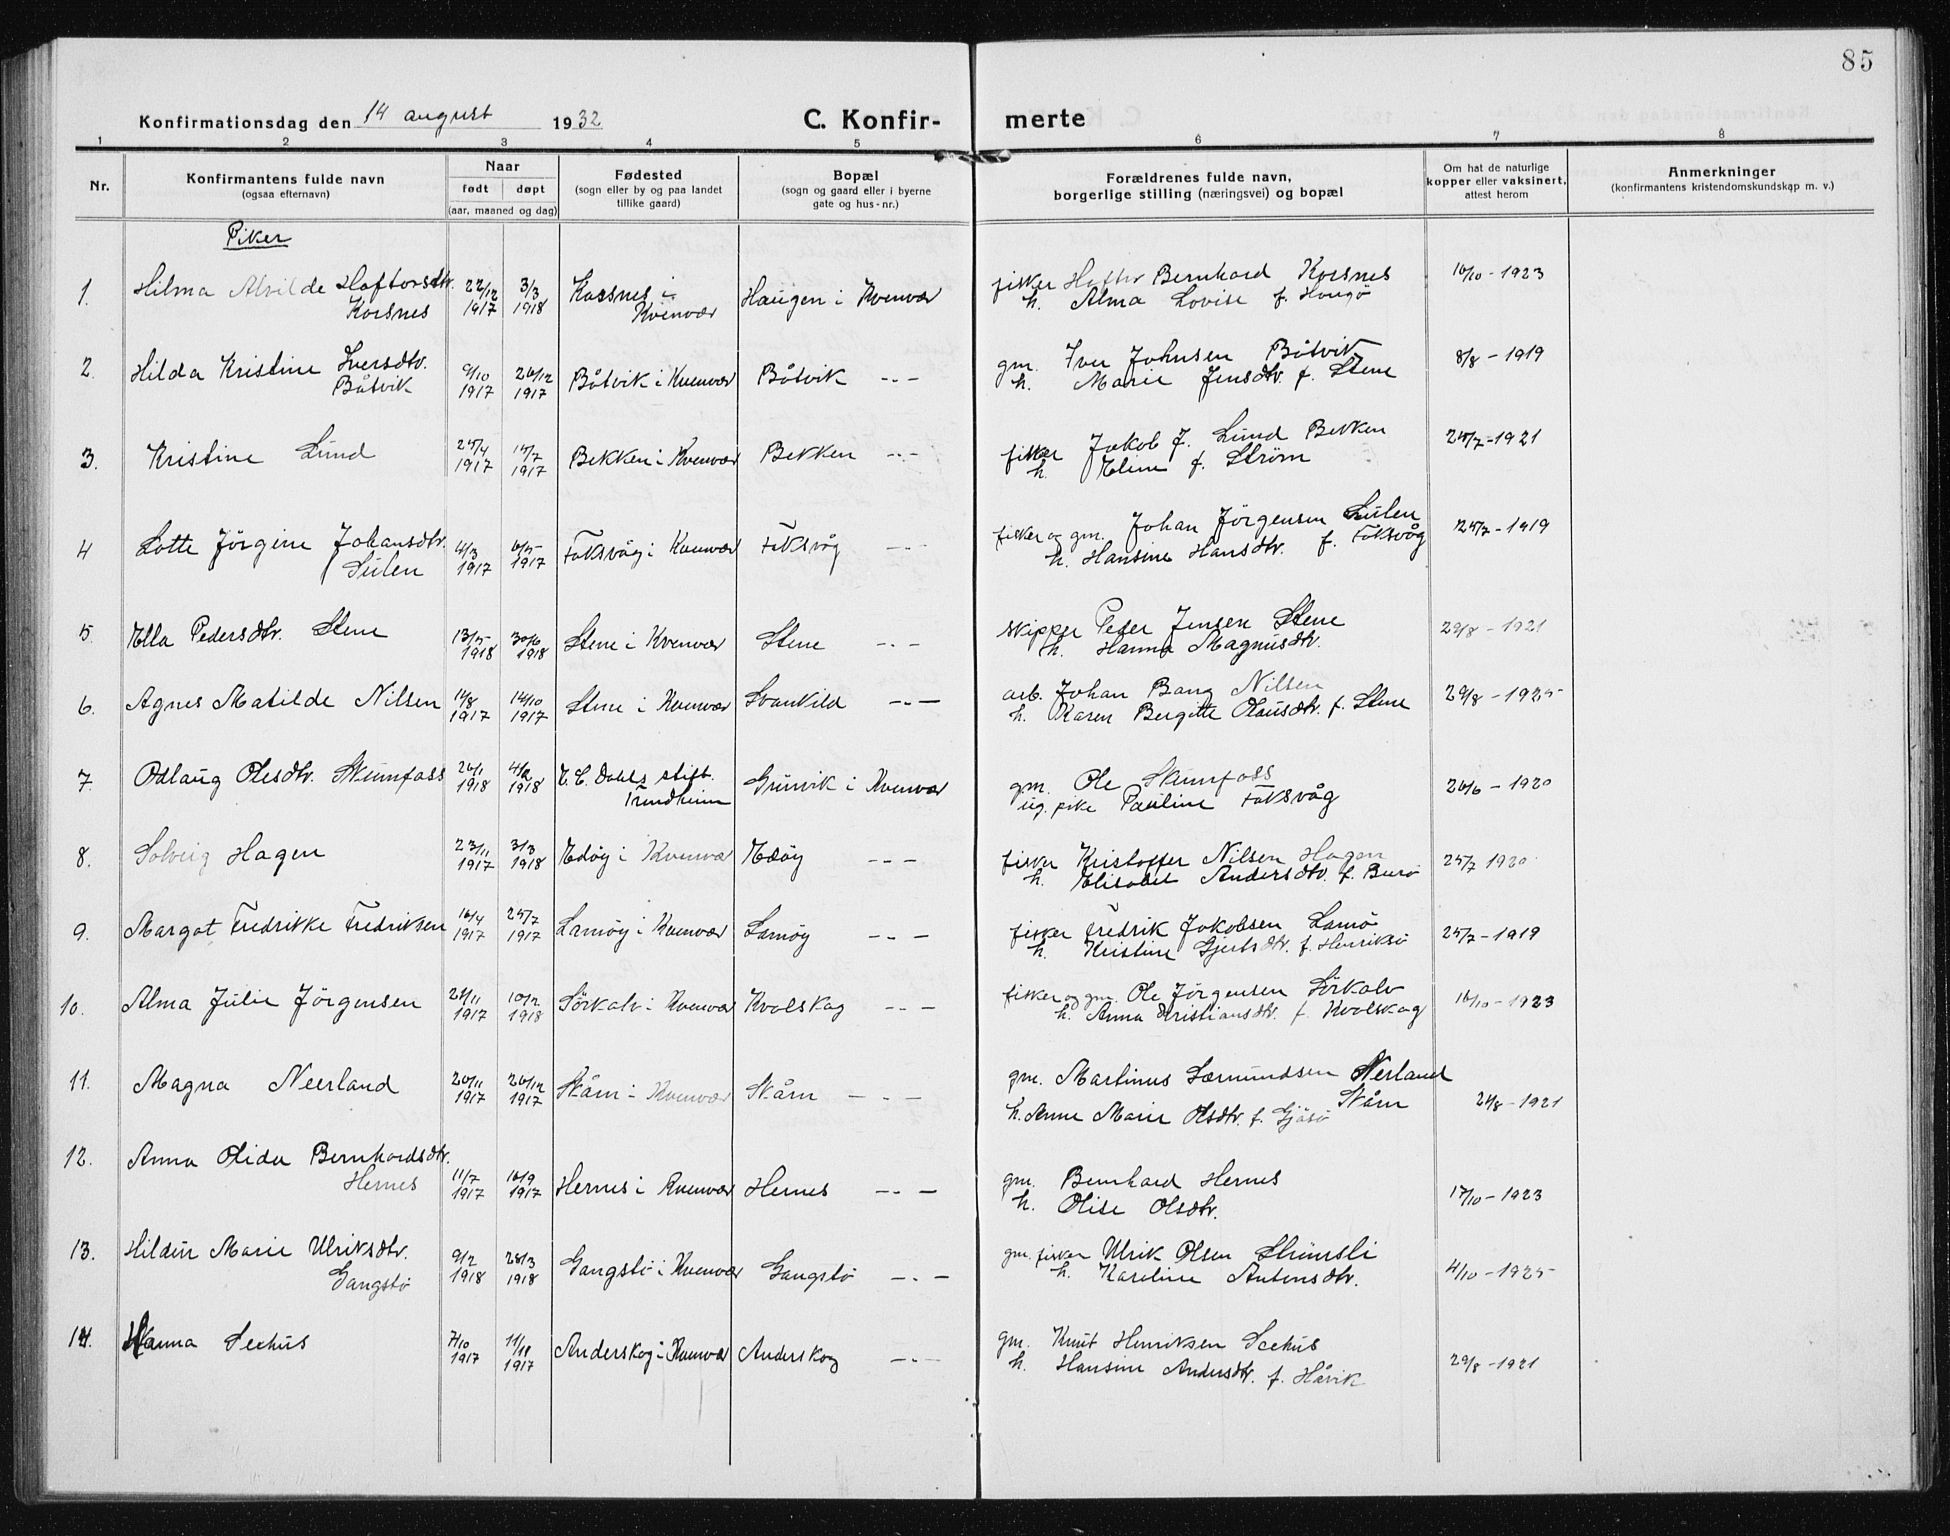 85
Konfirmationsdag den 14 august 1932
C. Konfir-
merte
1 2 3 4 5 6 7 8
Nr.
Konfirmantens fulde navn
(ogsaa efternavn)
Naar
født døpt
(aar, maaned og dag)
Fødested
(sogn eller by og paa landet
tillike gaard)
Bopæl
(sogn og gaard eller i byerne
gate og hus-nr.)
Forældrenes fulde navn,
borgerlige stilling (næringsvei) og bopæl
Om hat de naturlige
kopper eller vaksinert,
attest herom
Anmerkninger
(konfirmantens kristendomskundskap m. v.)
Piker
1. Hilma Alvilde Haftorsdtr. 22/12 3/3 Korsnes i Haugen i Kvenvær fisker Haftor Bernhard Korsnes 16/10 - 1923
Korsnes 1917 1918 Kvenvær h. Alma Lovise f. Haugø
2. Hilda Kristine Iversdtr. 9/10 26/12 Båtvik i Kvenvær Båtvik -„- gm. Iver Johnsen Båtvik 8/8 - 1919
Båtvik 1917 1917 h. Marie Jensdtr. f. Stene
3. Kristine Lund 25/4 15/7 Bekken i Kvenvær Bekken -„- fisker Jakob J. Lund Bekken 25/7 - 1921
1917 1917 h. Eline f. Strøm
4 Lotte Jörgine Johansdtr. 4/3 6/5 Faksvåg i Kvenvær Faksvåg -„- fisker og gm. Johan Jörgensen Sulen 25/7 - 1919
Sulen 1917 1917 h. Hansine Hansdtr. f. Faksvåg
5. Ella Pedersdtr. Stene 13/5 30/6 Stene i Kvenvær Stene -„- skipper Peder Jensen Stene 29/8 - 1921
1918 1918 h. Hanna Magnusdtr.
6. Agnes Matilde Nilsen 14/8 14/10 Stene i Kvenvær Svankild -„- arb. Johan Bang Nilsen 29/8 - 1925
1917 1917 h. Karen Bergitte Olausdtr. f. Stene
7. Odlaug Olesdtr. Skumfoss 26/1 4/2 E. C. Dahls stift. Grunvik i Kvenvær gm. Ole Skumfoss 26/6 - 1920
1918 1918 Trondheim ug. pike Pauline Faksvåg
8. Solveig Hagen 23/11 3/3 Edöy i Kvenvær Edöy -„- fisker Kristoffer Nilsen Hagen 25/7 1920
1917 1918 h. Elisabet Andersdtr. f. Burø
9. Margot Fredrikke Fredriksen 16/4 25/7 Lamöy i Kvenvær Lamöy -„- fisker Fredrik Jakobsen Lamö 25/7 - 1919
1917 1917 h. Kristine Gjertsdtr. f. Henriksö
10. Alma Julie Jörgensen 21/11 10/2 Sörkalv i Kvenvær Kvalskag -„- fisker og gm. Ole Jörgensen Sörkalv 16/10 - 1923
1917 1918 h. Anna Kristiansdtr. f. Kvalskag
11. Magna Neerland 20/11 26/12 Skårn i Kvenvær Skårn -„- gm. Martinus Sæmundsen Nerland
1917 1917 Skårn 24/8 - 1921
h. Anne Marie Olsdtr. f. Gjäsö
12. Anna Olida Bernhardsdtr. 11/7 16/9 Hernes i Kvenvær Hernes -„- gm. Bernhard Hernes 17/10 - 1923
Hernes 1917 1917 h. Olise Olsdtr.
13. Hildur Marie Ulriksdtr. 9/2 28/3 Gangstö i Kvenvær Gangstö -„- gm. fisker Ulrik Olsen Strömsli 4/10 - 1925
Gangstö 1918 1918 h. Karoline Antonsdtr.
14. Hanna Seehus 7/10 11/11 Anderskog i Kvenvær Anderskog -„- gm. Knut Henriksen Seehus 29/8 - 1921
1917 1917 h. Hansine Andersdtr. f. Håvik